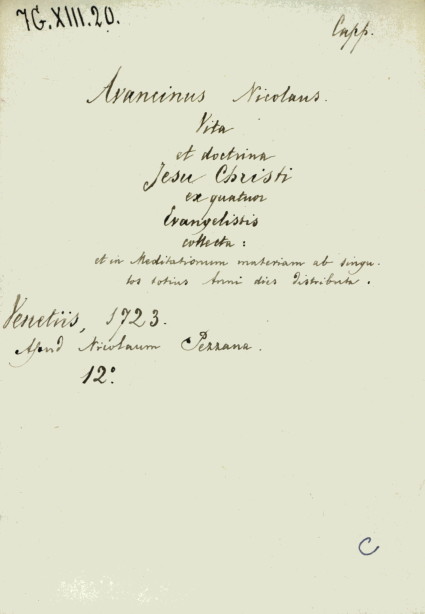 7G.XIII.20.
Capp.
Avancinus Nicolaus.
Vita
et doctrina
Jesu Christi
ex quatuor
Evangelistis
collecta:
et in Meditationum materiam ab singu-
los totius Anni dies distributa.
Venetiis, 1723.
Apud Nicolaum Pezzana.
12°.
C